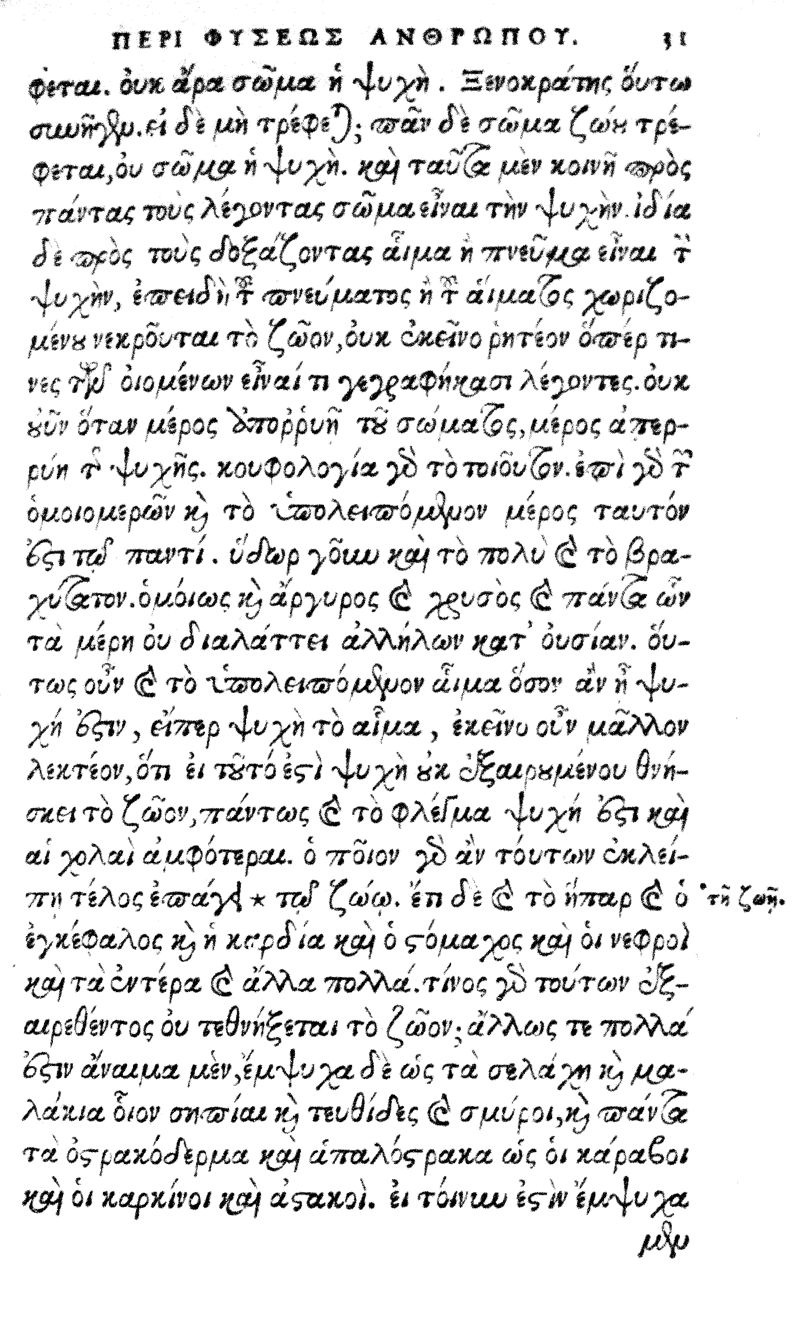 ΠΕΡΙ ΦΥΣΕΩΣ ΑΝΘΡΩΠΟΥ. 31
φεται. οὐκ ἄρα σῶμα ἡ ψυχὴ. Ξενοκράτης ὅυτω
συνῆγεν. εἰ δὲ μὴ τρέφεται; πᾶν δὲ σῶμα ζώου τρέ-
φεται, ου σῶμα ἡ ψυχὴ. καὶ ταῦτα μὲν κοινῆ πρὸς
πάντας τοὺς λέγοντας σῶμα εἶναι τὴν ψυχὴν. ἰδία
δὲ πρὸς τοὺς δοξάζοντας αἷμα ἢ πνεῦμα εἶναι τὴν
ψυχὴν, ἐπειδὴ τοῦ πνεύματος ἢ τοῦ αἵματος χωριζο-
μένου νεκροῦται τὸ ζῶον, οὐκ ἐκεῖνο ρητέον ὅπέρ τι-
νες τῶν ὀιομένων εἶναί τι γεγραφήκασι λέγοντες. οὐκ
οὖν ὅταν μέρος ὑποῤῥυῆ τοῦ σώματος, μέρος ἀπερ-
ρύη τῆς ψυχῆς. κουφολογία γὰρ τὸ τοιοῦτον. ἐπὶ γὰρ τῶν
ὁμοιομερῶν καὶ τὸ ὑπολειπόμενον μέρος ταυτόν
ἐστι τῷ παντί. ὕδωρ γοῦν καὶ τὸ πολὺ καὶ τὸ βρα-
χύτατον. ὁμόιως καὶ ἄργυρος καὶ χρυσὸς καὶ πάντα ὧν
τὰ μέρη ου διαλάττει ἀλλήλων κατ' ουσίαν. ὅυ-
τως οὖν καὶ τὸ ὑπολειπόμενον αἷμα ὅσον ἂν ἦ ψυ-
χή ἐστιν, εἴπερ ψυχὴ τὸ αἷμα, ἐκεῖνο οὖν μᾶλλον
λεκτέον, ὅτι ἐι τοῦτό ἐστὶ ψυχὴ οὐκ ἐξαιρουμένου θνή-
σκει τὸ ζῶον, πάντως καὶ τὸ φλέγμα ψυχή ἐστι καὶ
αἱ χολαὶ ἀμφότεραι. ὁ ποῖον γὰρ ἂν τόυτων ἐκλεί-
πη τέλος ἐπάγει * τῷ ζώῳ. ἔτι δὲ καὶ τὸ ἧπαρ καὶ ὁ * τῆ ζωῆ.
ἐγκέφαλος καὶ ἡ καρδία καὶ ὁ στόμαχος καὶ ὁι νεφροὶ
καὶ τὰ ἐντέρα καὶ ἄλλα πολλά. τίνος γὰρ τούτων ἐξ-
αιρεθέντος ου τεθνήξεται τὸ ζῶον; ἄλλως τε πολλά
ἐστιν ἄναιμα μὲν, ἔμψυχα δὲ ὡς τὰ σελάχη καὶ μα-
λάκια ὅιον σηπίαι καὶ τευθίδες καὶ σμύροι, καὶ πάντα
τὰ ὀστρακόδερμα καὶ ἁπαλόστρακα ὡς ὁι κάραβοι
καὶ ὁι καρκίνοι καὶ ἀστακοὶ. ἐι τόινυν ἐστὶν ἔμψυχα
μὲν